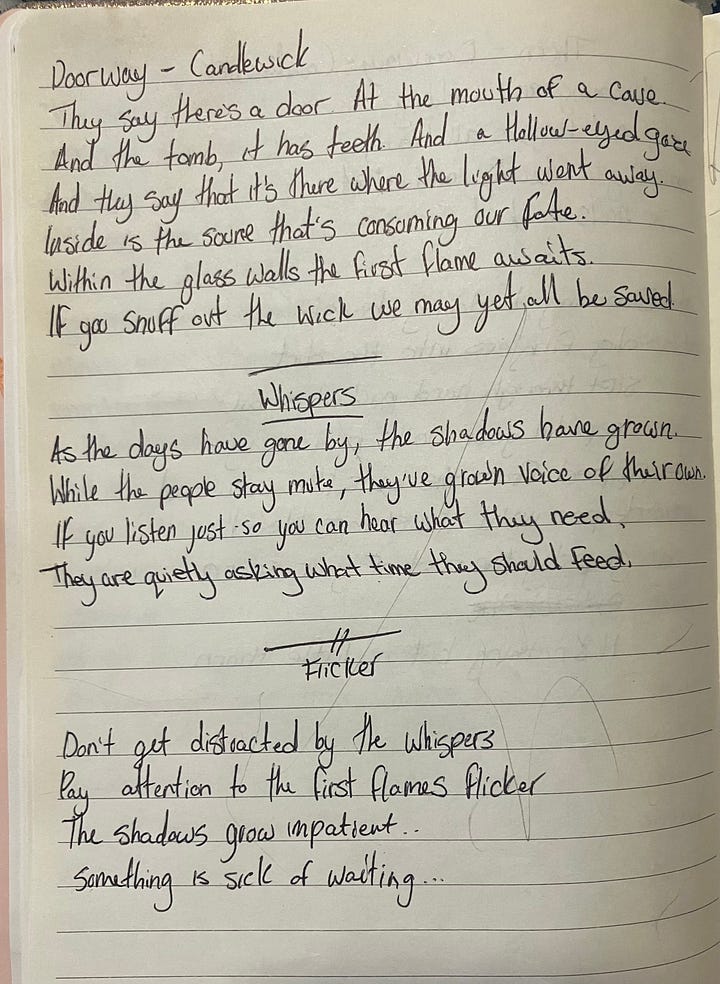 Doorway - Candlewick
They say there's a door At the mouth of a Cave.
And the tomb, it has teeth. And a Hallow-eyed gaze
And they say that it's there where the light went away.
Inside is the sourse that's consuming our fate.
Within the glass walls the first flame awaits.
If you snuff out the wick we may yet all be saved.
Whispers
As the days have gone by, the shadows have grown.
While the people stay mute, they've grown voice of their own.
If you listen just so you can hear what they need,
They are quietly asking what time they should feed.
Flicker
Don't get distracted by the whispers
Pay attention to the first flames flicker
The shadows grow impatient..
Something is sick of waiting...